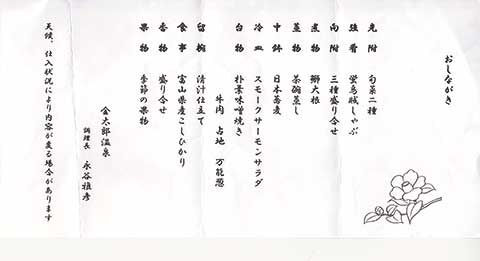 おしながき
先附 旬菜二種
強肴 蛍烏賊しゃぶ
向附 三種盛り合せ
煮物 鰤大根
蒸物 茶碗蒸し
中鉢 日本蕎麦
冷皿 スモークサーモンサラダ
台物 朴葉味噌焼き
牛肉 占地 万能葱
留椀 清汁仕立て
食事 富山県産こしひかり
香物 盛り合せ
果物 季節の果物
金太郎温泉
調理長 永谷雅彦
天候、仕入状況により内容が変る場合があります